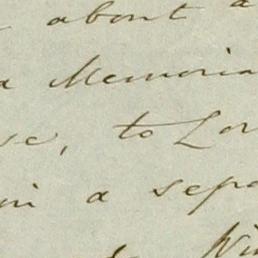 about a
a Memoria
se, to Lor
in a sepa